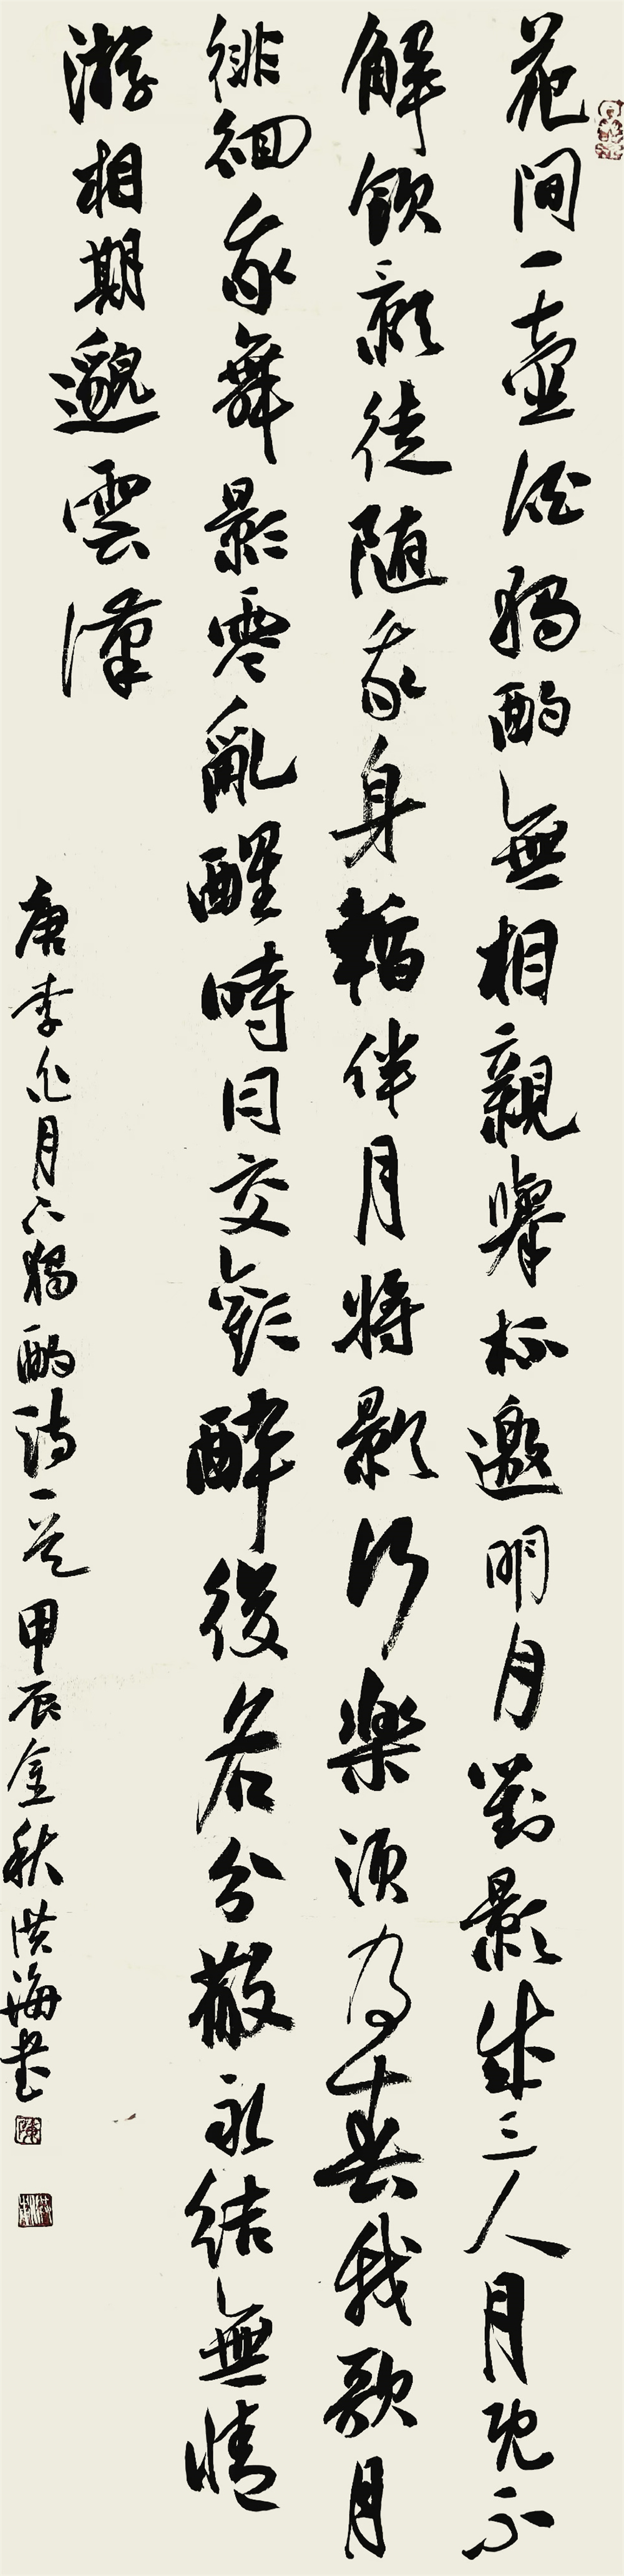 花間一壺酒獨酌無相親舉杯邀明月對影成三人月既不
解飲影徒隨我身暫伴月將影行樂須為春我歌月
徘徊我舞影零亂醒時同交歡醉後各分散永結無情
游相期邈雲漢
唐李白月下獨酌詩一首甲辰金秋洪海書